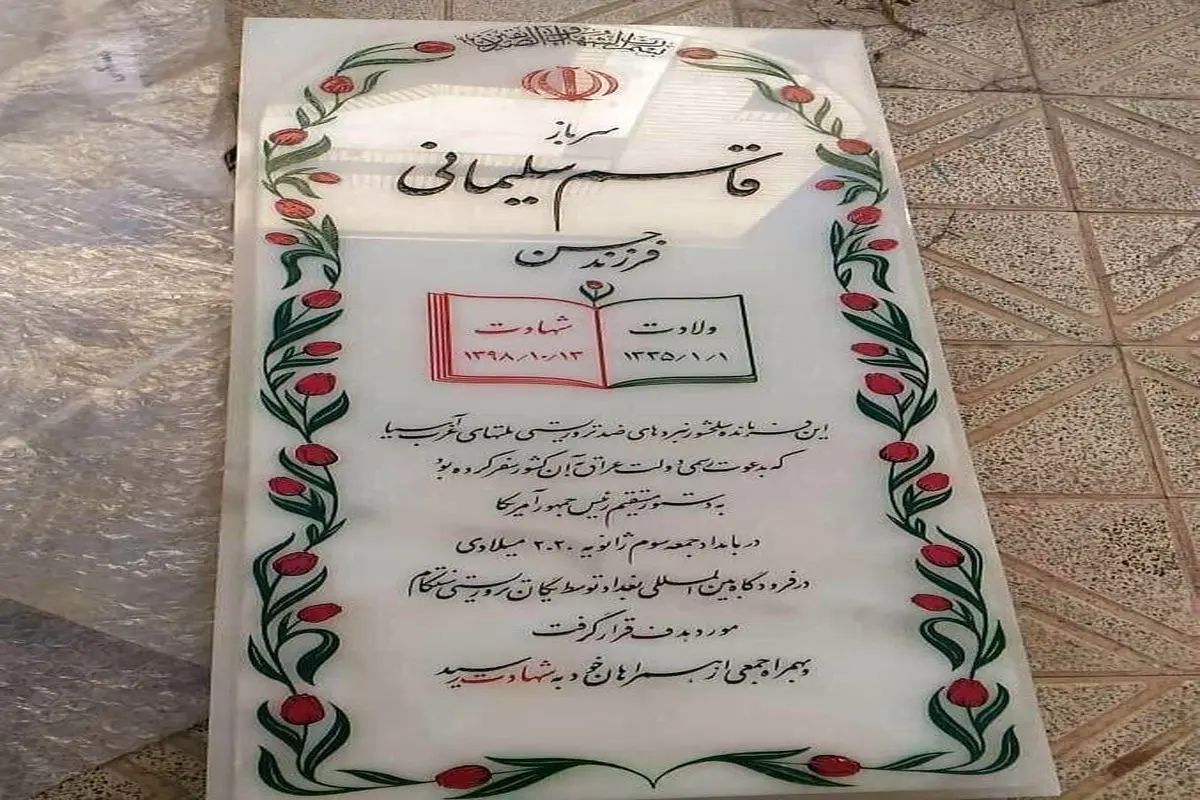 بسم رب الشهداء و الصدیقین
سرباز
قاسم سلیمانی
فرزند حسن
ولادت شهادت
۱۳۳۵/۱/۱ ۱۳۹۸/۱۰/۱۳
این فرمانده سلحشور نیروهای ضد تروریستی ملتهای غرب آسیا
که بدعوت رسمی دولت عراق به آن کشور سفر کرده بود
به دستور مستقیم رئیس جمهور آمریکا
در بامداد جمعه سوم ژانویه ۲۰۲۰ میلادی
در فرودگاه بین المللی بغداد توسط یگان تروریستی
مورد هدف قرار گرفت
و بهمراه جمعی از همراهان خود به شهادت رسید